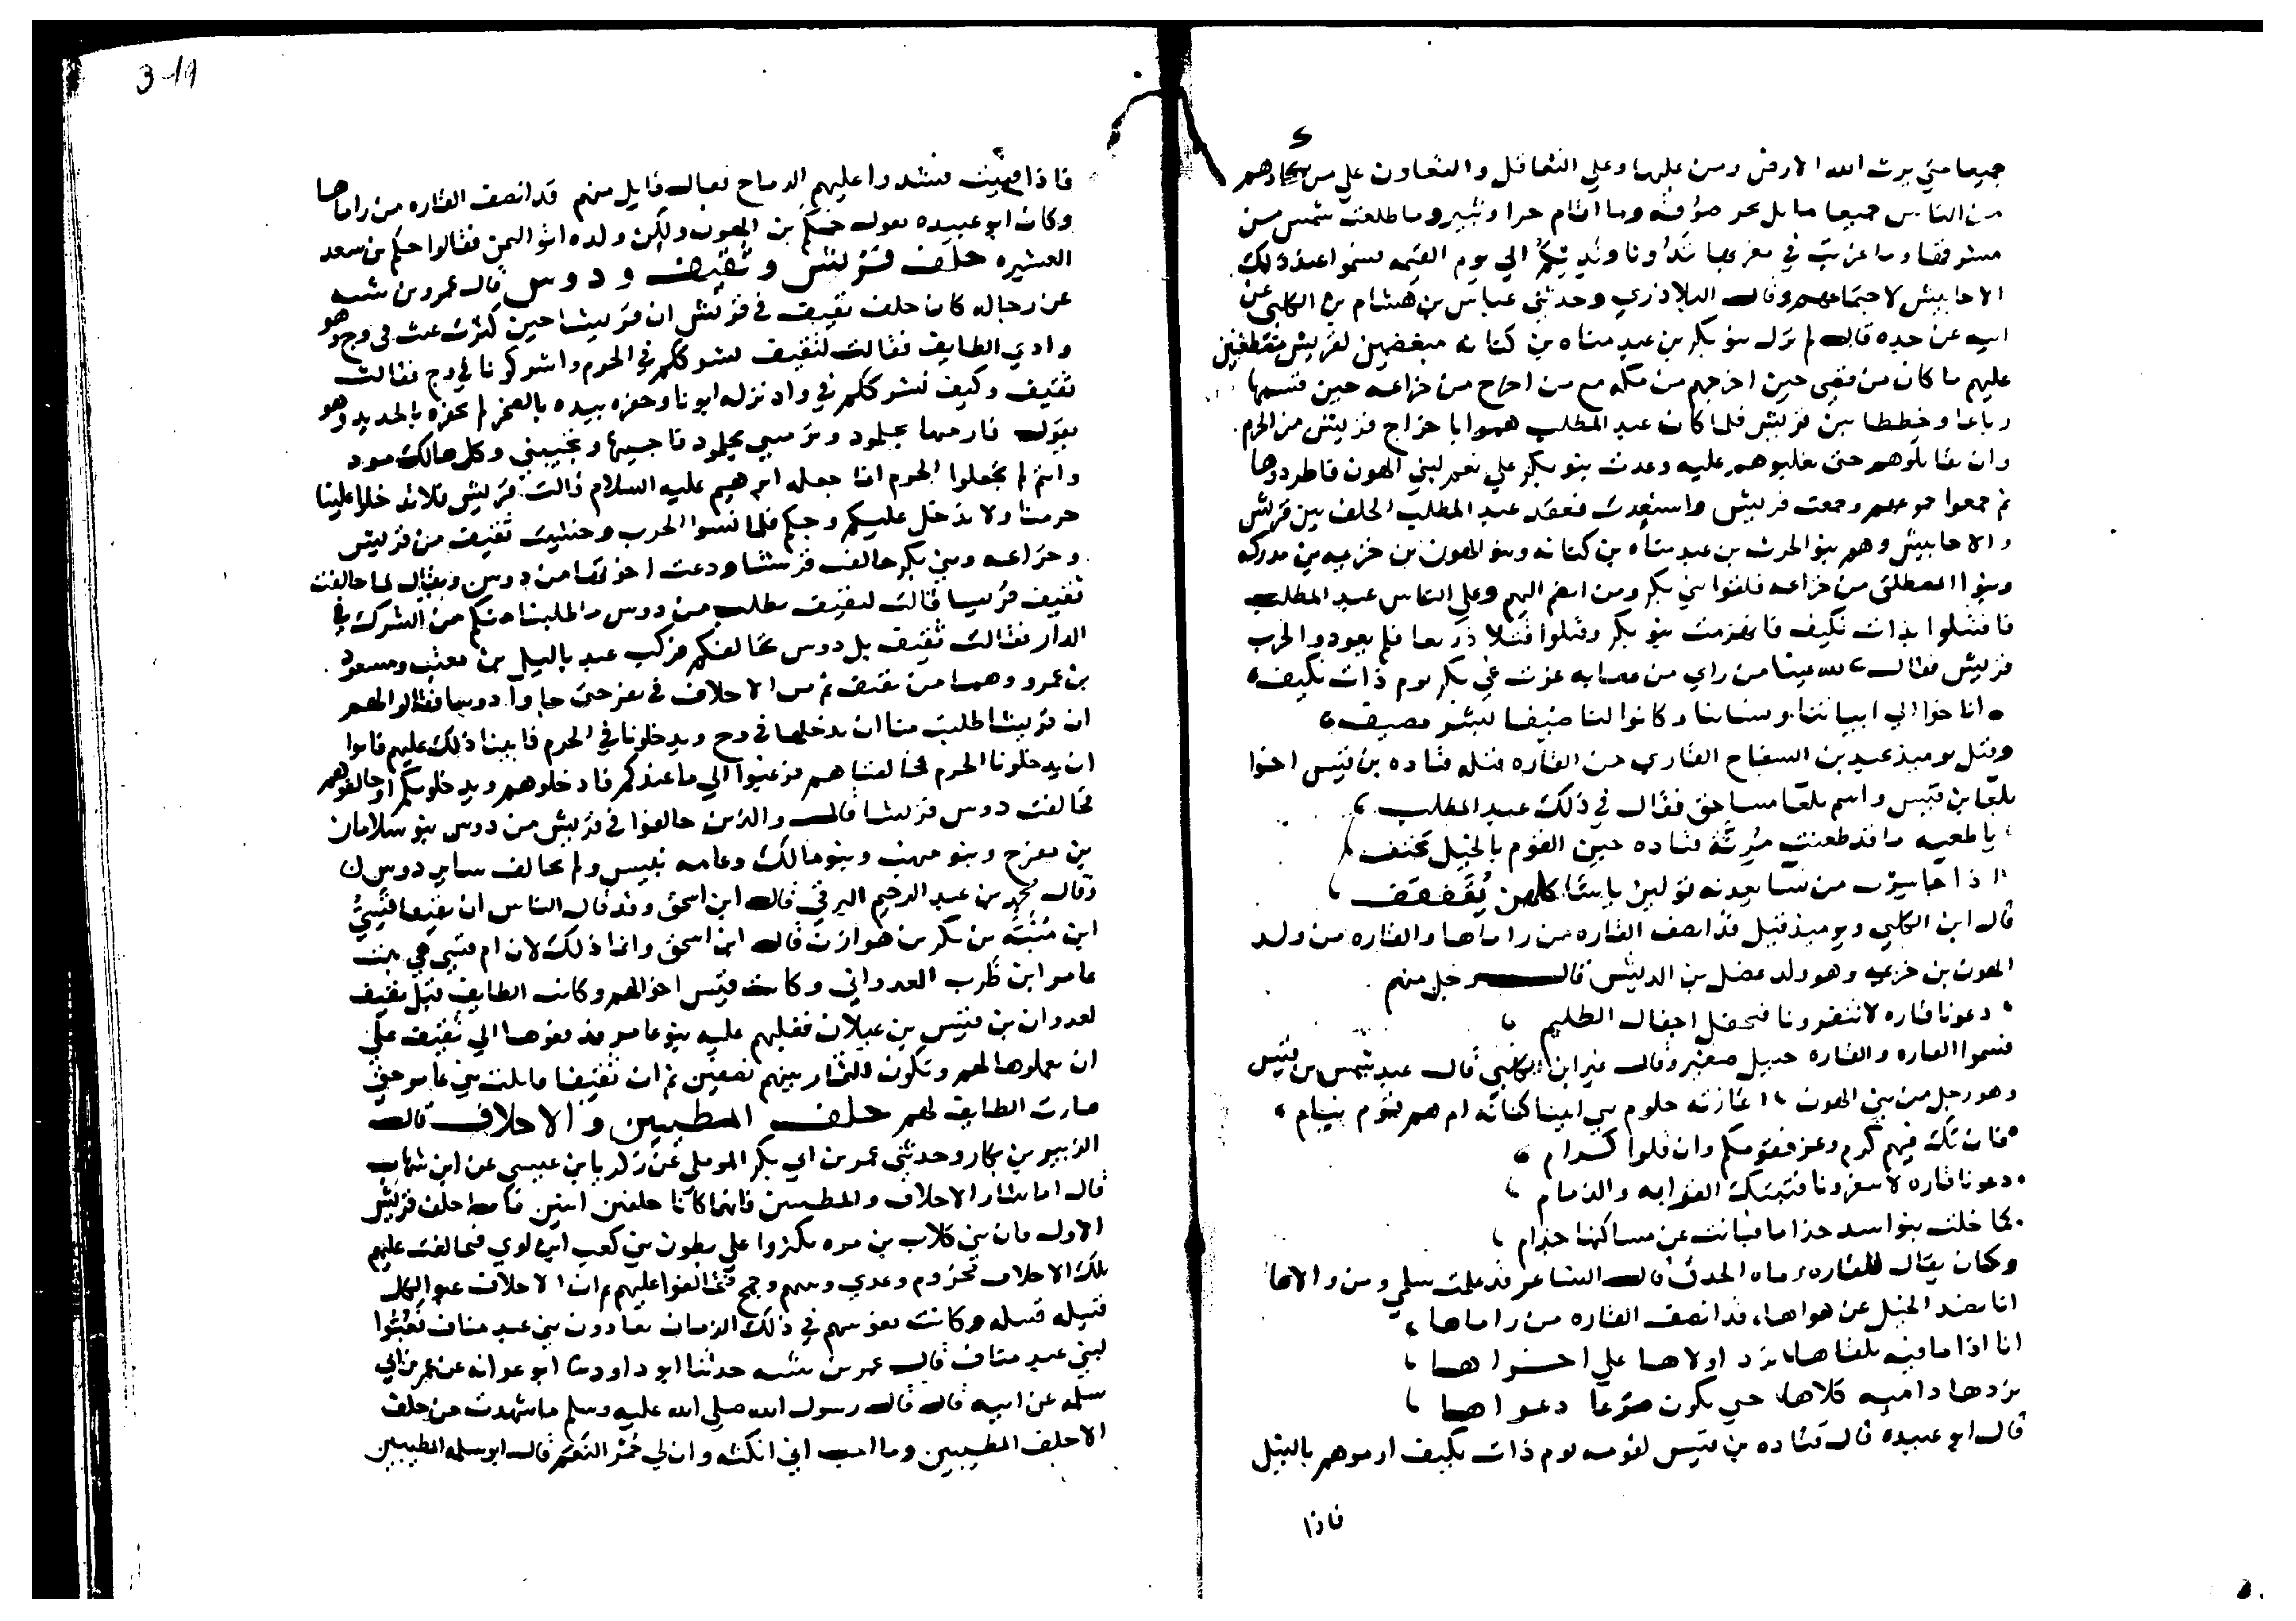 جميعا حتى يرث الله الارض ومن عليها وعلى التعاقل والتعاون على من كادهم
من الناس جميعا ما بل بحر صوفه وما اقام حرا وثبير وما طلعت شمس من
مشرقها وما غربت في مغربها الي يوم القيمه فسموا عند ذلك
الاحابيش لاجتماعهم وقال البلاذري وحدثني عباس بن هشام بن الكلبي عن
ابيه عن جده قال لم تزل بنو بكر بن عبد مناه بن كنانه مبغضين لقريش مضطغنين
عليهم ما كان من قصي حين اخرجهم من مكه مع من اخرج من خزاعه حين قسمها
رباعا وخططا بين قريش فلما كان عبد المطلب هموا باخراج قريش من الحرم
وان يقاتلوهم حتى يغلبوهم عليه وعدت بنو بكر علي نعم لبني الهون فاطردوها
ثم جمعوا جموعهم وجمعت قريش واستعدت فعقد عبد المطلب الحلف بين قريش
والاحابيش وهم بنو الحرث بن عبد مناه بن كنانه وبنو الهون بن خزيمه بن مدركه
وبنو المصطلق من خزاعه فلقوا بني بكر ومن انضم اليهم وعلي الناس عبد المطلب
فاقتتلوا بذات نكيف فانهزمت بنو بكر وقتلوا قتلا ذريعا فلم يعودوا لحرب
قريش فقال لله عينا من راي من عصابه غوت غي بكر يوم ذات نكيف
اناخوا الي ابياتنا ونسائنا فكانوا لنا ضيفا لشر مضيف
وقتل يوميذ عبيد بن السفاح القاري من القاره قتله قتاده بن قيس اخوا
بلعا بن قيس واسم بلعا مساحق فقال في ذلك عبد المطلب
يا طعنه ما قد طعنت مرشة قتاده حين القوم بالخيل تخنف
قال ابن الكلبي ويوميذ قيل قد انصف القاره من راماها والقاره من ولد
الهون بن خزيمه وهو ولد عضل بن الديش قال رجل منهم
دعونا قاره لا تنفرونا فنجفل اجفال الظليم
فسموا القاره والقاره جبيل صغير وقال غير ابن الكلبي قال عبد شمس بن قيس
وهو رجل من بني الهون اعازته حلوم بني ابينا كنانه ام هم قوم نيام
فان تك فيهم كرم وعز فقومكم وان قلوا كرام
دعونا قاره لا تنفرونا فتبتك القرابه والذمام
كما خلت بنو اسد جذاما فبانت عن مساكنها جذام
وكان يقال للقاره رماه الحدق قال الشاعر قد علمت سلمي ومن والاها
انا نصد الخيل عن هواها، قد انصف القاره من راماها
انا اذا ما فيه نلقاها، نرد اولاها علي اخراها
نردها داميه كلاها، حتي يكون دعواها
قال ابو عبيده قال قتاده بن قيس لقومه يوم ذات نكيف ارموهم بالنبل
فاذا
3-19
فاذا فنيت فشدوا عليهم الرماح فقال قايل منهم قد انصف القاره من راماها
وكان ابو عبيده يقول حكم بن الهون ولكن ولده اتوا اليمن فقالوا حكم بن سعد
العشيره حلف قريش وثقيف ودوس قال عمر بن شبه
عن رجاله كان حلف ثقيف في قريش ان قريشا حين كثرت رغبت في وج وهو
وادي الطايف فقالت لثقيف نشرككم في الحرم واشركونا في وج فقالت
ثقيف وكيف نشرككم في واد نزله ابونا وحفره بيده بالصخر لم يحفره بالحديد وهو
يقول فارمها بجلمود وترميني بجلمود فاحييها وتحييني وكل هالك مود
وانتم لم تجعلوا الحرم انما جعله ابرهيم عليه السلام قالت قريش فلا تدخلوا علينا
حرمنا ولا ندخل عليكم وجكم فلما نسوا الحرب وخشيت ثقيف من قريش
وخزاعه وبني بكر حالفت قريشا ودعت اخوتها من دوس ويقال لما حالفت
ثقيف قريشا قالت لثقيف نطلب من دوس ما طلبنا منكم من الشرك في
الدار فقالت ثقيف بل دوس تحالفكم فركب عبد ياليل بن معتب ومسعود
بن عمرو وهما من ثقيف ثم من الاحلاف في نفر حتى جاوا دوسا فقالوا لهم
ان قريشا طلبت منا ان ندخلها في وج ويدخلونا في الحرم فابينا ذلك عليهم فابوا
ان يدخلونا الحرم فحالفناهم فرغبوا الي ما عندكم فادخلوهم ويدخلوكم او حالفوهم
فحالفت دوس قريشا قال والذين حالفوا في قريش من دوس بنو سلامان
بن مفرج وبنو منهب وبنو مالك وعامه ولم يحالف ساير دوس
وقال محمد بن عبد الرحيم البرقي قال ابن اسحق وقد قال الناس ان ثقيفا قسي
ابن منبه بن بكر بن هوازن قال ابن اسحق وانما ذلك لان ام قسي هي بنت
عامر ابن ظرب العدواني وكانت قيس اخوالهم وكانت الطايف قبل ثقيف
لعدوان بن قيس بن عيلان فغلبهم عليه بنو عامر فدفعوها الي ثقيف علي
ان يعملوها لهم وتكون الثمار بينهم نصفين ثم ان ثقيفا قاتلت بني عامر حتى
صارت الطايف لهم حلف المطيبين والاحلاف قال
الزبير بن بكار وحدثني عمر بن ابي بكر الموملي عن زكريا بن عيسي عن ابن شهاب
قال اما شان الاحلاف والمطيبين فانما كانا حلفين اثنين فاما حلف قريش
الاول فان بني كلاب بن مره تكبروا علي بطون بني كعب ابن لوي فتحالفت عليهم
تلك الاحلاف مخزوم وعدي وسهم وجمح فتحالفوا عليهم ثم ان الاحلاف عبوا لكل
قبيله قبيله وكانت نفوسهم في ذلك الزمان يعادون بني عبد مناف فعبئوا
لبني عبد مناف قال عمر بن شبه حدثنا ابو داود ثنا ابو عوانه عن عمر بن ابي
سلمه عن ابيه قال قال رسول الله صلي الله عليه وسلم ما شهدت من حلف
الا حلف المطيبين وما احب اني انكثه وان لي حمر النعم قال ابو سلمه المطيبين